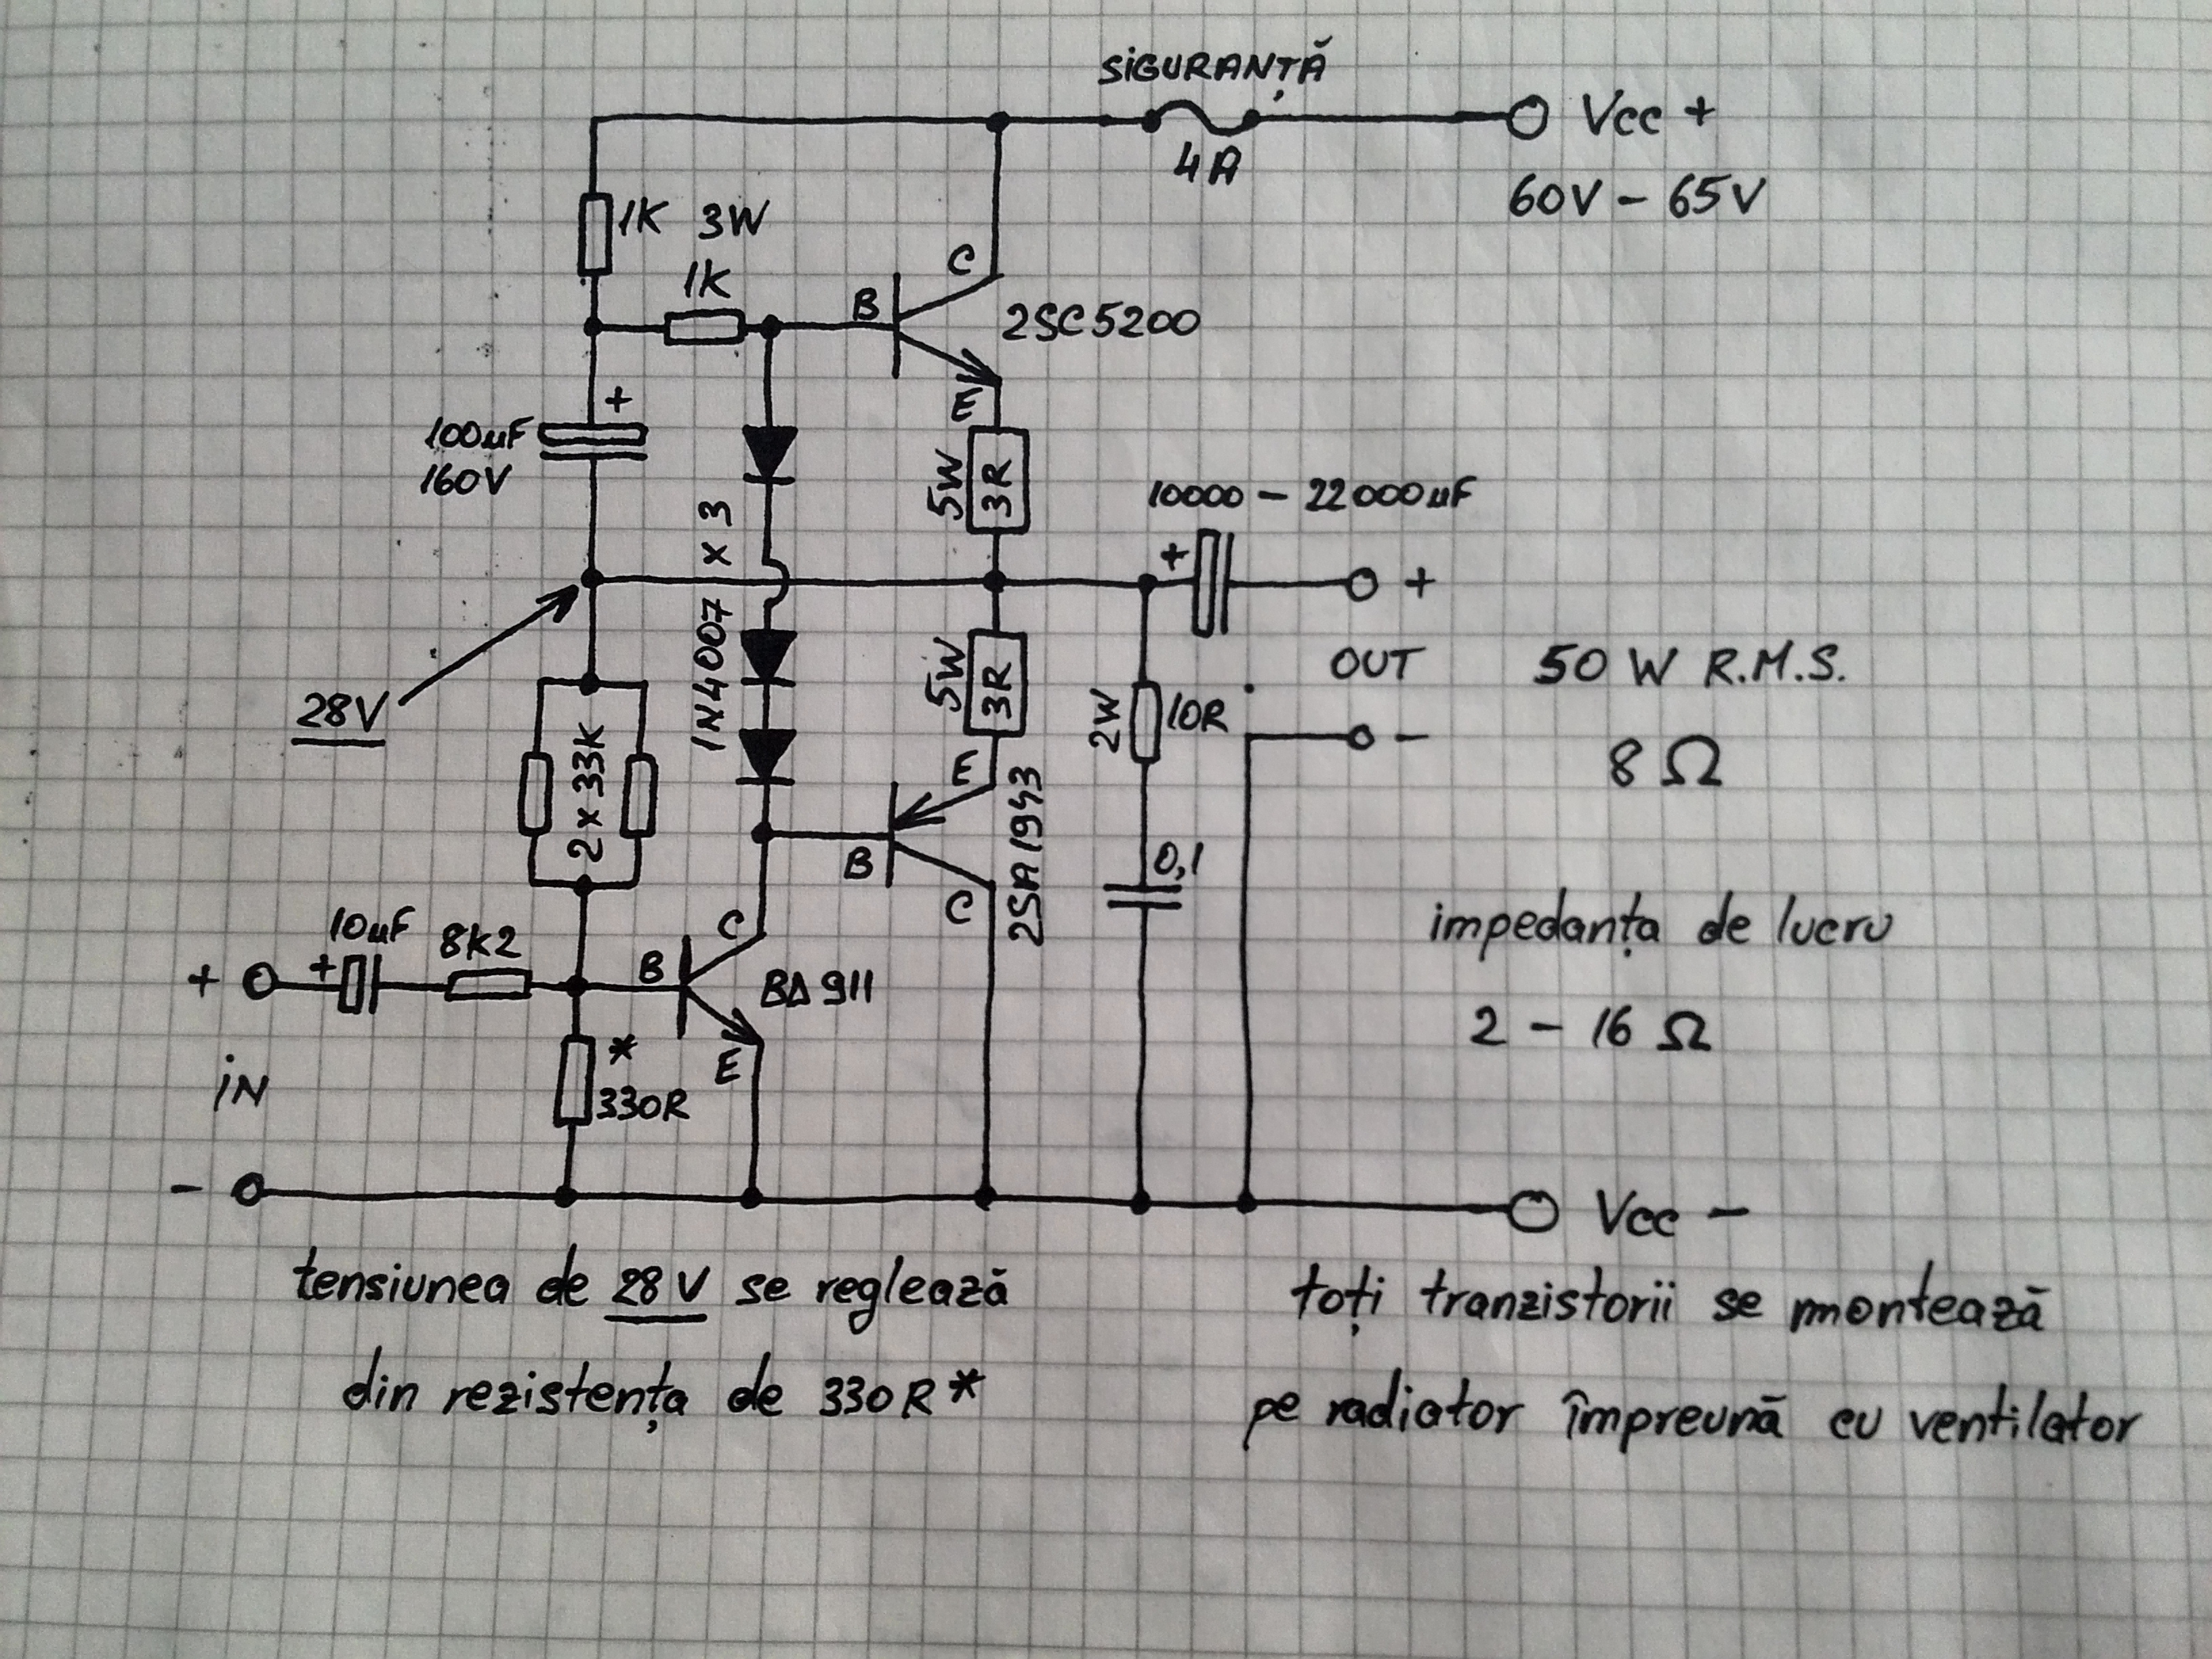 SIGURANȚĂ
4A
Vcc +
60V – 65V
1K 3W
1K
B
C
E
2SC5200
+
100uF
160V
5W
3R
1N4007 x 3
10000 – 22000uF
+
+
28V
2 x 33K
5W
3R
OUT
50 W R.M.S.
8 Ω
–
2W
10R
E
B
C
2SA1943
0,1
10uF
8K2
+
+
B
C
E
BD 911
impedanța de lucru
2 – 16 Ω
iN
*
330R
–
Vcc –
tensiunea de 28 V se reglează
din rezistența de 330R*
toți tranzistorii se montează
pe radiator împreună cu ventilator